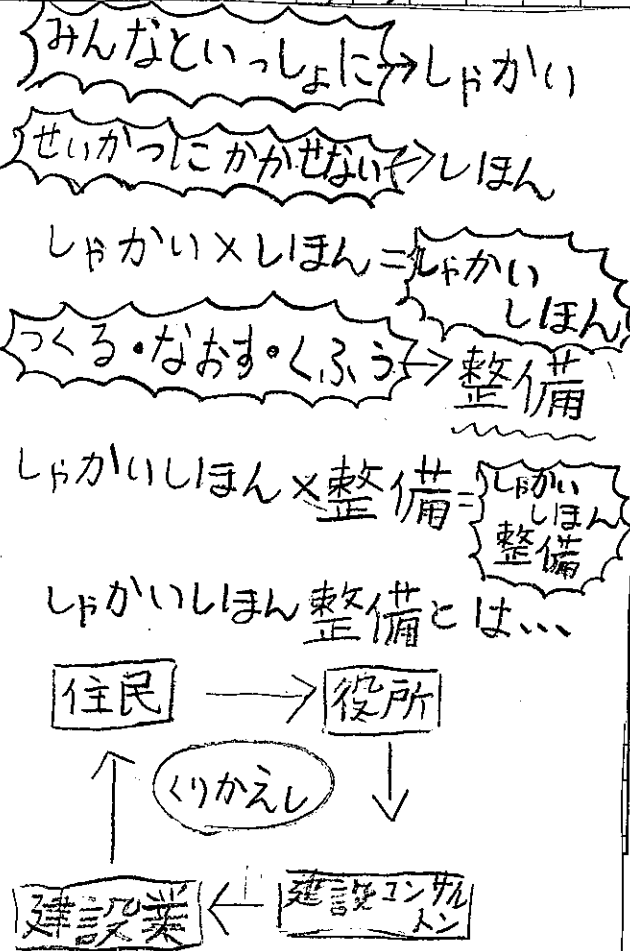 みんなといっしょに→しゃかい
せいかつにかかせない→しほん
しゃかい×しほん=しゃかい
しほん
つくる・なおす・くふう→整備
しゃかいしほん×整備=しゃかい
しほん
整備
しゃかいしほん整備とは...
住民→役所
くりかえし
建設業←建設コンサル
トン